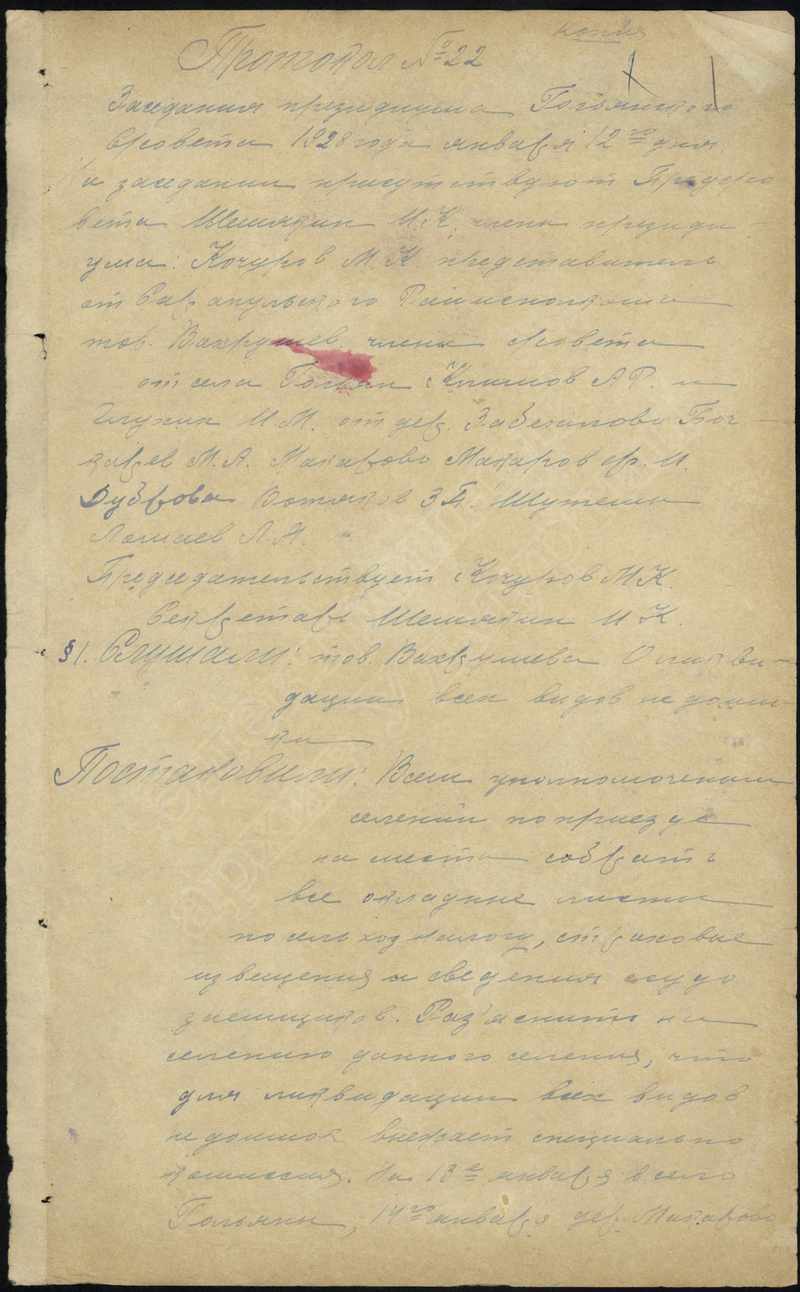 копия
Протокол № 22
Заседания президиума Гольянского
Совета 1928 года января 12го дня
На заседании присутствуют Предсо
вета Шемякин И.К. члена президи
ума: Кочуров М.К представитель
от Сарапульского Райисполкома
тов. Вахрушев, члена Совета
от села Гольян Климов А.Р. и
И.М. от дер. Забегалово Боч
карев М.А. Макарово Макаров Ф.И.
Дуброва Вотяков З.П. Шутели
Л.Н.
Председательствует Кочуров М.К.
Секретарь Шемякин И К.
§ 1. Слушали: тов. Вахрушева О ликви-
дации всех видов недоим-
ки
Постановили: Всем уполномоченным
селений по приезде
на места собрать
все окладные листы
по сельхозналогу, страховые
извещения и сведения ссудо
заемщиков. Раз'яснить на
селению данного селения, что
для ликвидации всех видов
недоимок выезжает специально
комиссия. На 13е января в село
Гольяны, 14го января дер. Макарово